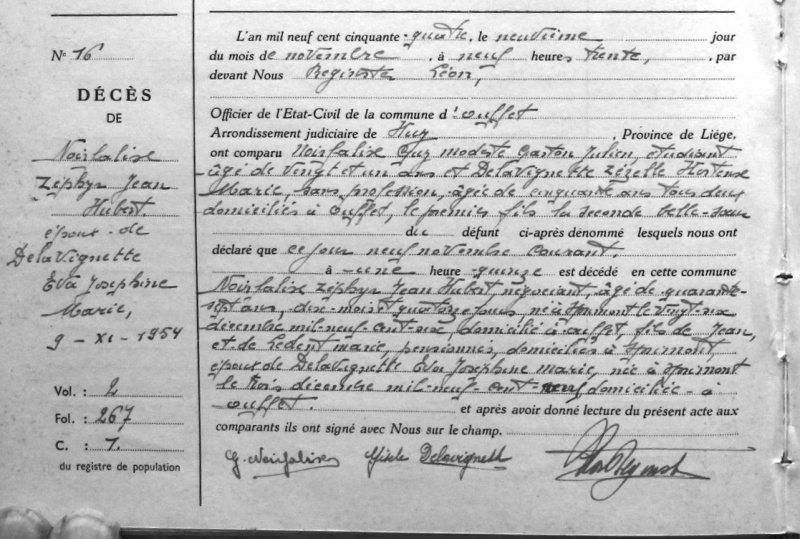 N° 16
DÉCÈS
DE
Noirfalise
Zéphyr Jean
Hubert.
époux de
Delavignette
Eva Josephine
Marie,
9 - XI - 1954
Vol. : 2
Fol. : 267
C. : 1.
du registre de population
L'an mil neuf cent cinquante-quatre, le neuvième jour
du mois de novembre, à neuf heures trente, , par
devant Nous Registre Léon,
Officier de l'Etat-Civil de la commune d'Ouffet
Arrondissement judiciaire de Huy , Province de Liége,
ont comparu Noirfalise Guy Modeste Gaston Julien, étudiant
âgé de vingt et un ans et Delavignette Hortense
Marie, sans profession, âgée de cinquante ans tous deux
domiciliés à Ouffet, le premier fils la seconde belle-sœur
du défunt ci-après dénommé lesquels nous ont
déclaré que ce jour neuf novembre courant.
à -une heure quinze est décédé en cette commune
Noirfalise Zéphyr Jean Hubert, négociant, âgé de quarante-
sept ans, dix mois quatorze jours né à Sprimont le vingt-six
décembre mil-neuf-cent-six, domicilié à Ouffet, fils de Jean,
et de Ledent Marie, pensionnés, domiciliés à Sprimont,
époux de Delavignette Eva Josephine Marie, née à Sprimont
le trois décembre mil-neuf-cent-neuf domiciliée à
Ouffet. et après avoir donné lecture du présent acte aux
comparants ils ont signé avec Nous sur le champ.
G. Noirfalise Delavignette